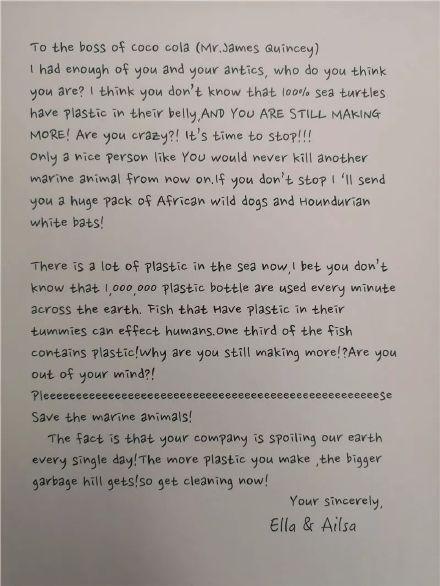 To the boss of coco cola (Mr.James Quincey)
I had enough of you and your antics, who do you think
you are? I think you don't know that 100% sea turtles
have plastic in their belly,AND YOU ARE STILL MAKING
MORE! Are you crazy?! It's time to stop!!!
Only a nice person like YOU would never kill another
marine animal from now on.If you don't stop I 'll send
you a huge pack of African wild dogs and Houndurian
white bats!
There is a lot of plastic in the sea now,I bet you don't
know that 1,000,000 plastic bottle are used every minute
across the earth. Fish that Have plastic in their
tummies can effect humans.One third of the fish
contains plastic!Why are you still making more!?Are you
out of your mind?!
Pleeeeeeeeeeeeeeeeeeeeeeeeeeeeeeeeeeeeeeeeeeeeeeeeeeese
Save the marine animals!
The fact is that your company is spoiling our earth
every single day!The more plastic you make ,the bigger
garbage hill gets!so get cleaning now!
Your sincerely,
Ella & Ailsa